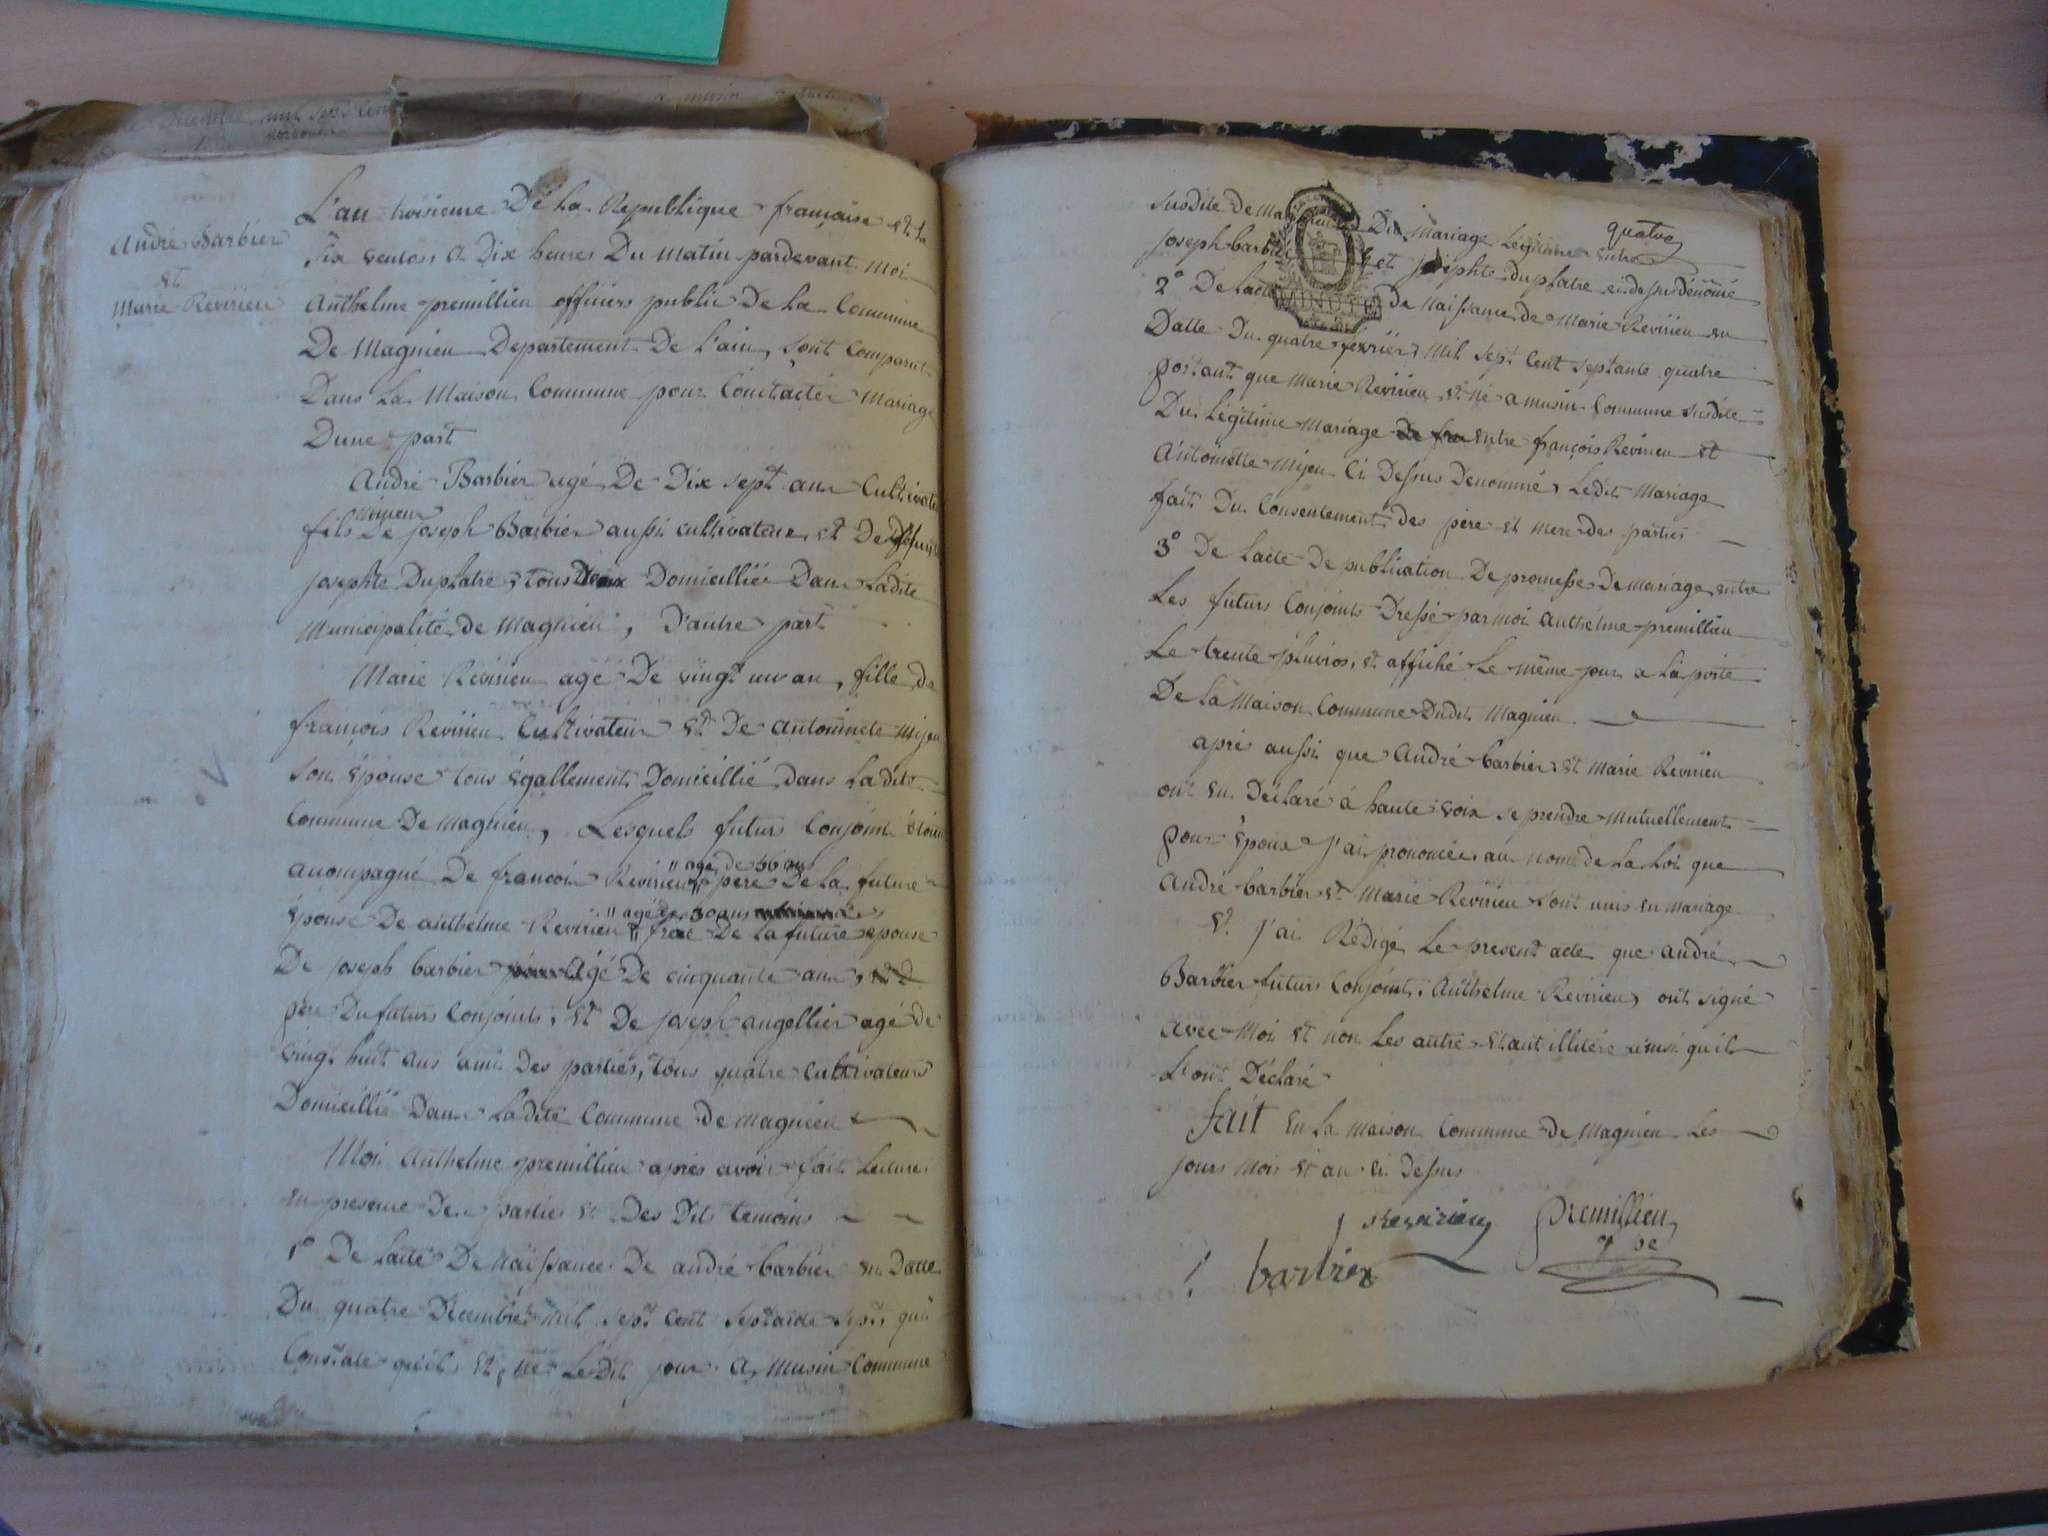 André Barbier
et
Marie Revirieu
L'an troisieme De la Republique française et le
six ventos, a Dix heures Du Matin pardevant moi
Anthelme premillieu officiers public De la Commune
De Magnieu Departement De l'ain, sont Comparut
Dans la Maison Commune pour Contracter Mariage
Dune part
André Barbier agé De Dix sept ans Cultivateur
mineur
fils De joseph Barbier aussi cultivateur et De Defunte
josephte Duplatre, tous Deux Domicillié Dans Ladite
Municipalité de Magnieu, D'autre part
Marie Revirieu agé De vingt un an, fille de
françois Revirieu Cultivateur et De antoinete Mijeu
son épouse tous égallement Domicillié dans Ladite
Commune De magnieu, Lesquels futurs Conjoint étoient
acompagné De francois Revirieu " agé de ans père De la future
épouse De anthelme Revirieu " agé de 30 ans frere De la future epouse
De joseph barbier agé De cinquante ans
père Du futurs Conjoints, et De joseph angellier agé de
vingt huit ans ami Des parties, tous quatre Cultivateurs
Domicillié Dans Ladite Commune de magnieu
Moi Anthelme premillieu après avoir fait Lecture
en presence De parties et Des Dits temoins
1° De lacte De Naissance De andré barbier en Datte
Du quatre Decembre Mil sept Cent septante sept qui
Constate qu'il et né Le Dit jour a Musin Commune
quatre
susdite de Ma Du Mariage Légitime entre
joseph barbier et josephte duplatre ci desu dénomé
2° De lacte De Naissance de Marie Revirieu en
MINUTE
Datte Du quatre février Mil sept Cent septante quatre
portant que Marie Revirieu et né a musin Commune susdite
Du Légitime Mariage De fra entre françois Revirieu et
Antoinette Mijeu Ci Desus Denommé, Ledit Mariage
fait Du Consentement des père et mere des parties
3° De lacte De publication De promesse De mariage entre
Les futurs Conjoints Dressé par moi anthelme premillieu
Le trente pluvios, et affiché Le même jour a la porte
De la Maison Commune Dudit Magnieu
après aussi que André barbier et Marie Revirieu
ont eu Déclaré à haute voix se prendre Mutuellement
pour époux j'ai prononcée au nom de la Loi que
André barbier et Marie Revirieu sont unis en mariage
et j'ai Rédigé Le present acte que andré
Barbier futurs Conjoint, Anthelme Revirieu, ont signé
avec Moi et non Les autre etant illitéré ainsi qu'il
L'ont Déclaré
fait en la maison Commune de Magnieu Les
jours mois et an ci Desus
Revirieu premillieu
barbier